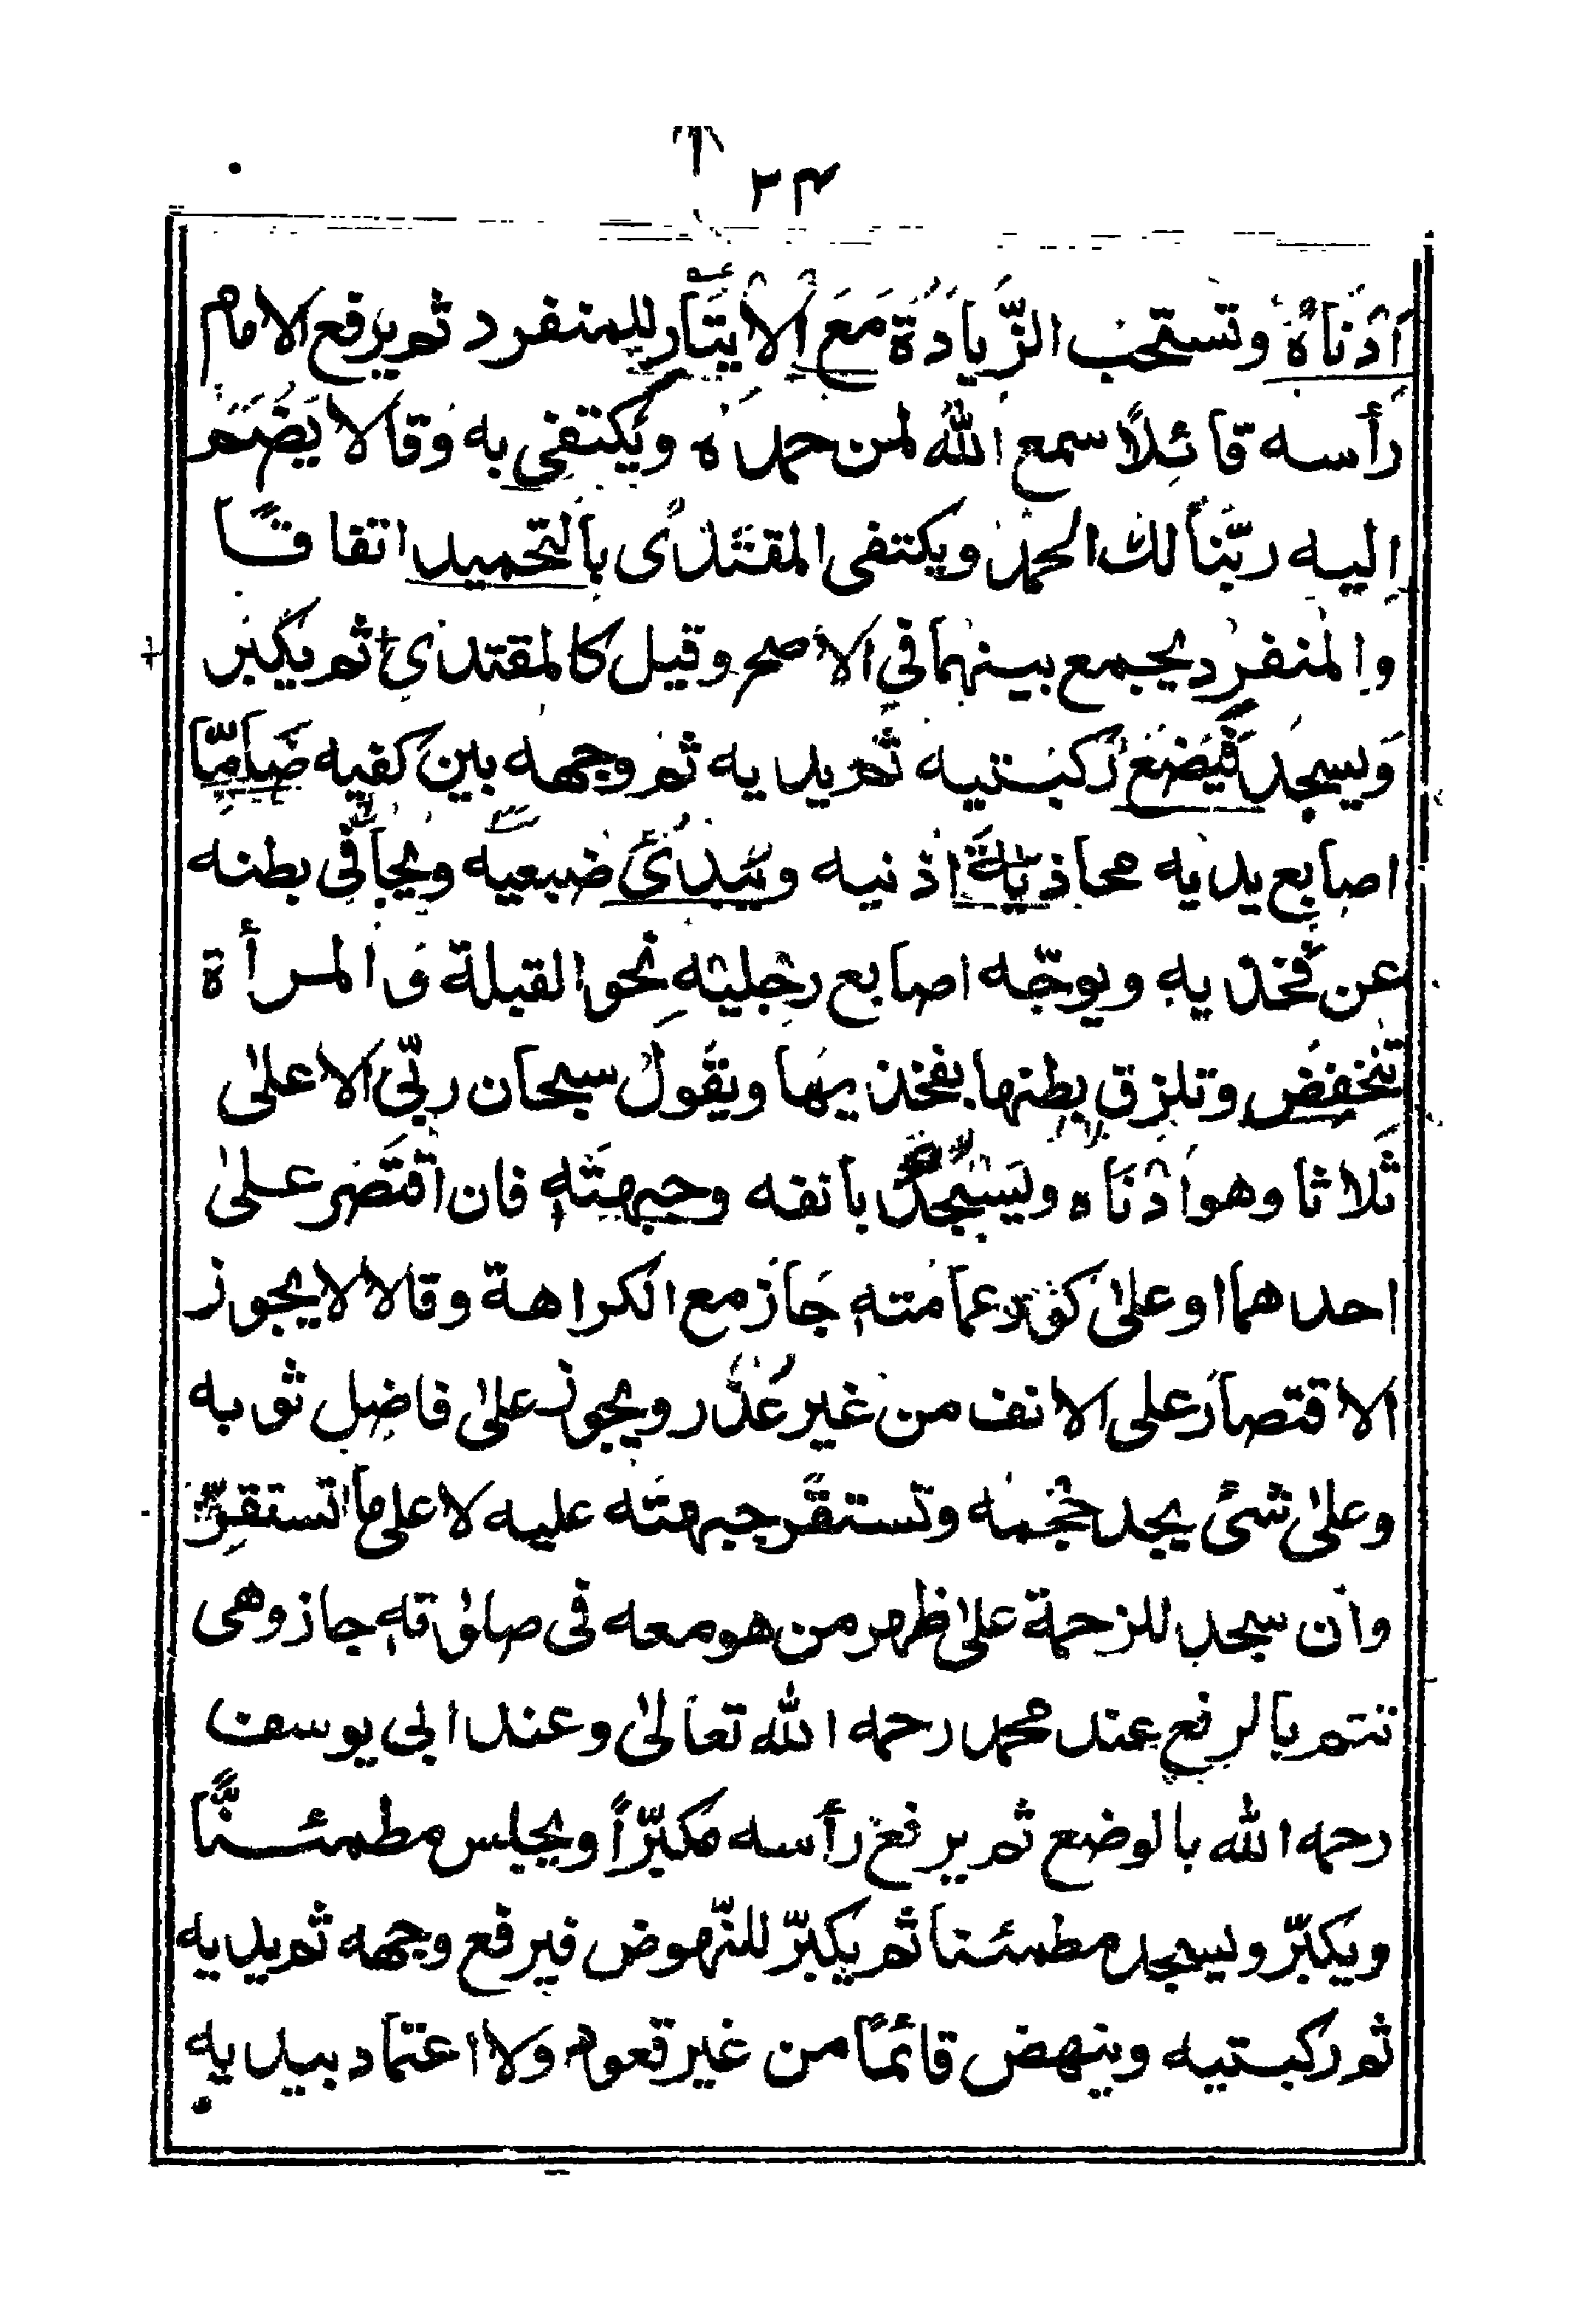 ٣٤
أَدْنَاهُ وتستحب الزّيادةُ مَعَ الايتار للمنفرد ثم يرفع الامام
رأسه قائلًا سمع الله لمن حمده ويكتفى به وقالا يَضُم
اليه ربّنا لك الحمد ويكتفى المقتدى بالتحميد اتفاقًا
والمنفرد يجمع بينهما في الاصح وقيل كالمقتدى ثم يكبر
وَيسجد فيضع ركبتيه ثم يديه ثم وجهه بين كفيه ضَامًّا
اصابع يديه محاذية اذنيه ويبدى ضبعيه ويجافى بطنه
عن فخذيه ويوجّه اصابع رجليه نحو القبلة وَالمرأة
تنخفض وتلزق بطنها بفخذيها ويقول سبحان ربّي الاعلىٰ
ثلاثا وهو ادناه ويسجد بانفه وجبهته فان اقتصر علىٰ
احدهما او علىٰ كور عمامته جَاز مع الكراهة وقالا لا يجوز
الاقتصار على الانف من غير عُذر ويجوز علىٰ فاضل ثوبه
وعلىٰ شىٔ يجد حجمه وتستقر جبهته عليه لا على ما تستقرّ
وان سجد للزحمة علىٰ ظهر من هو معه فى صلوٰته جاز وهى
تتم بالرفع عند محمد رحمه الله تعالىٰ وعند ابى يوسف
رحمه الله بالوضع ثم يرفع رأسه مكبّرًا ويجلس مطمئنًّا
ويكبّر ويسجد مطمئنا ثم يكبّر للنّهوض فيرفع وجهه ثم يديه
ثم ركبتيه وينهض قائمًا من غير قعود ولا اعتماد بيديه